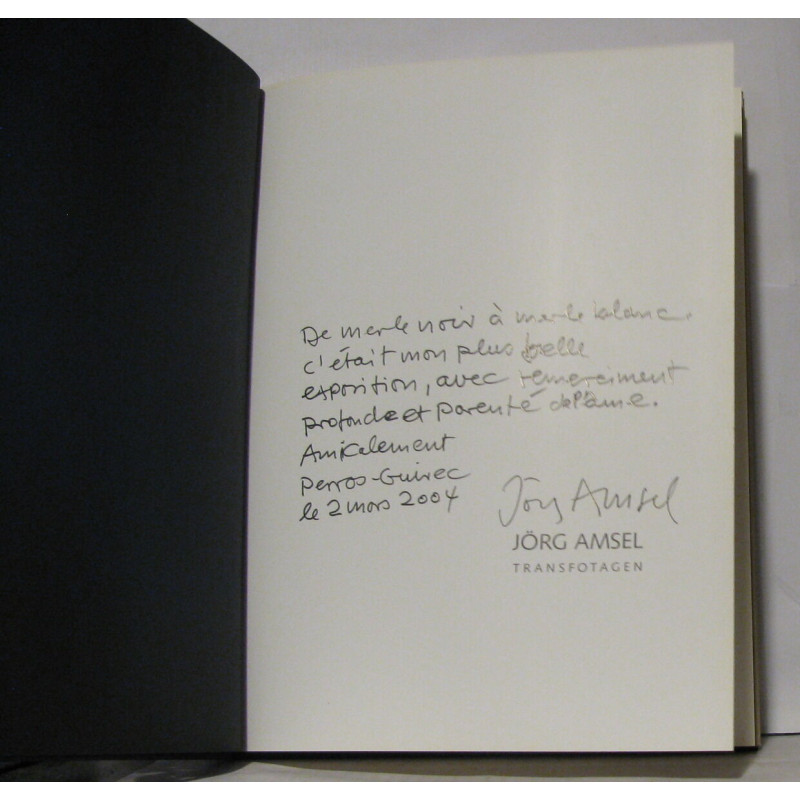 De merle noir à merle blanc.
c'était mon plus belle
exposition, avec remerciment
profonde et parenté de l'âme.
Amicalement
Perros-Guirec
le 2 mars 2004
Jörg Amsel
JÖRG AMSEL
TRANSFOTAGEN